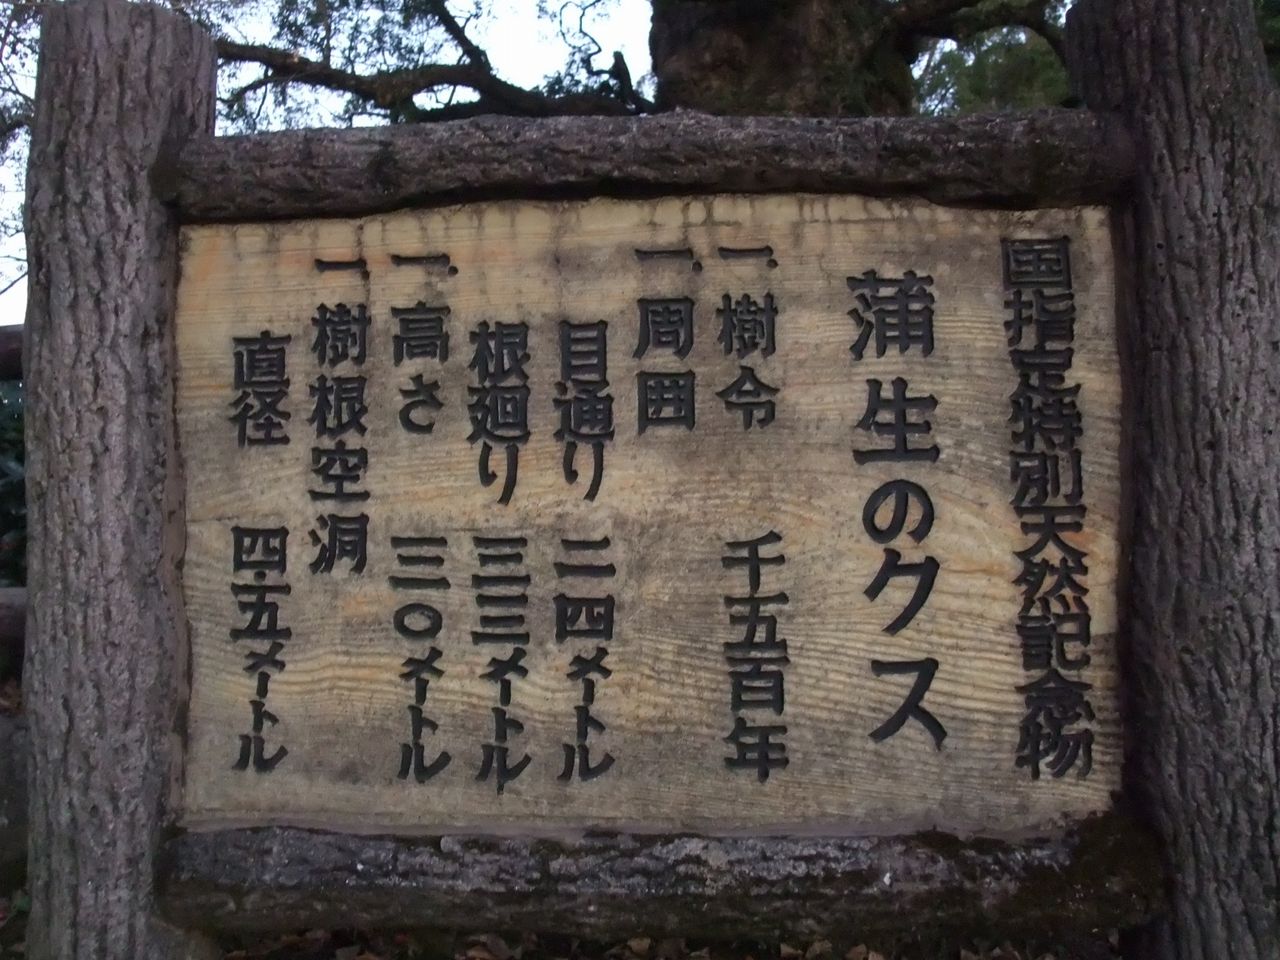 国指定特別天然記念物
蒲生のクス
一.樹令 千五百年
一.周囲
目通り 二四メートル
根廻り 三三メートル
一.高さ 三〇メートル
一.樹根空洞
直径 四.五メートル